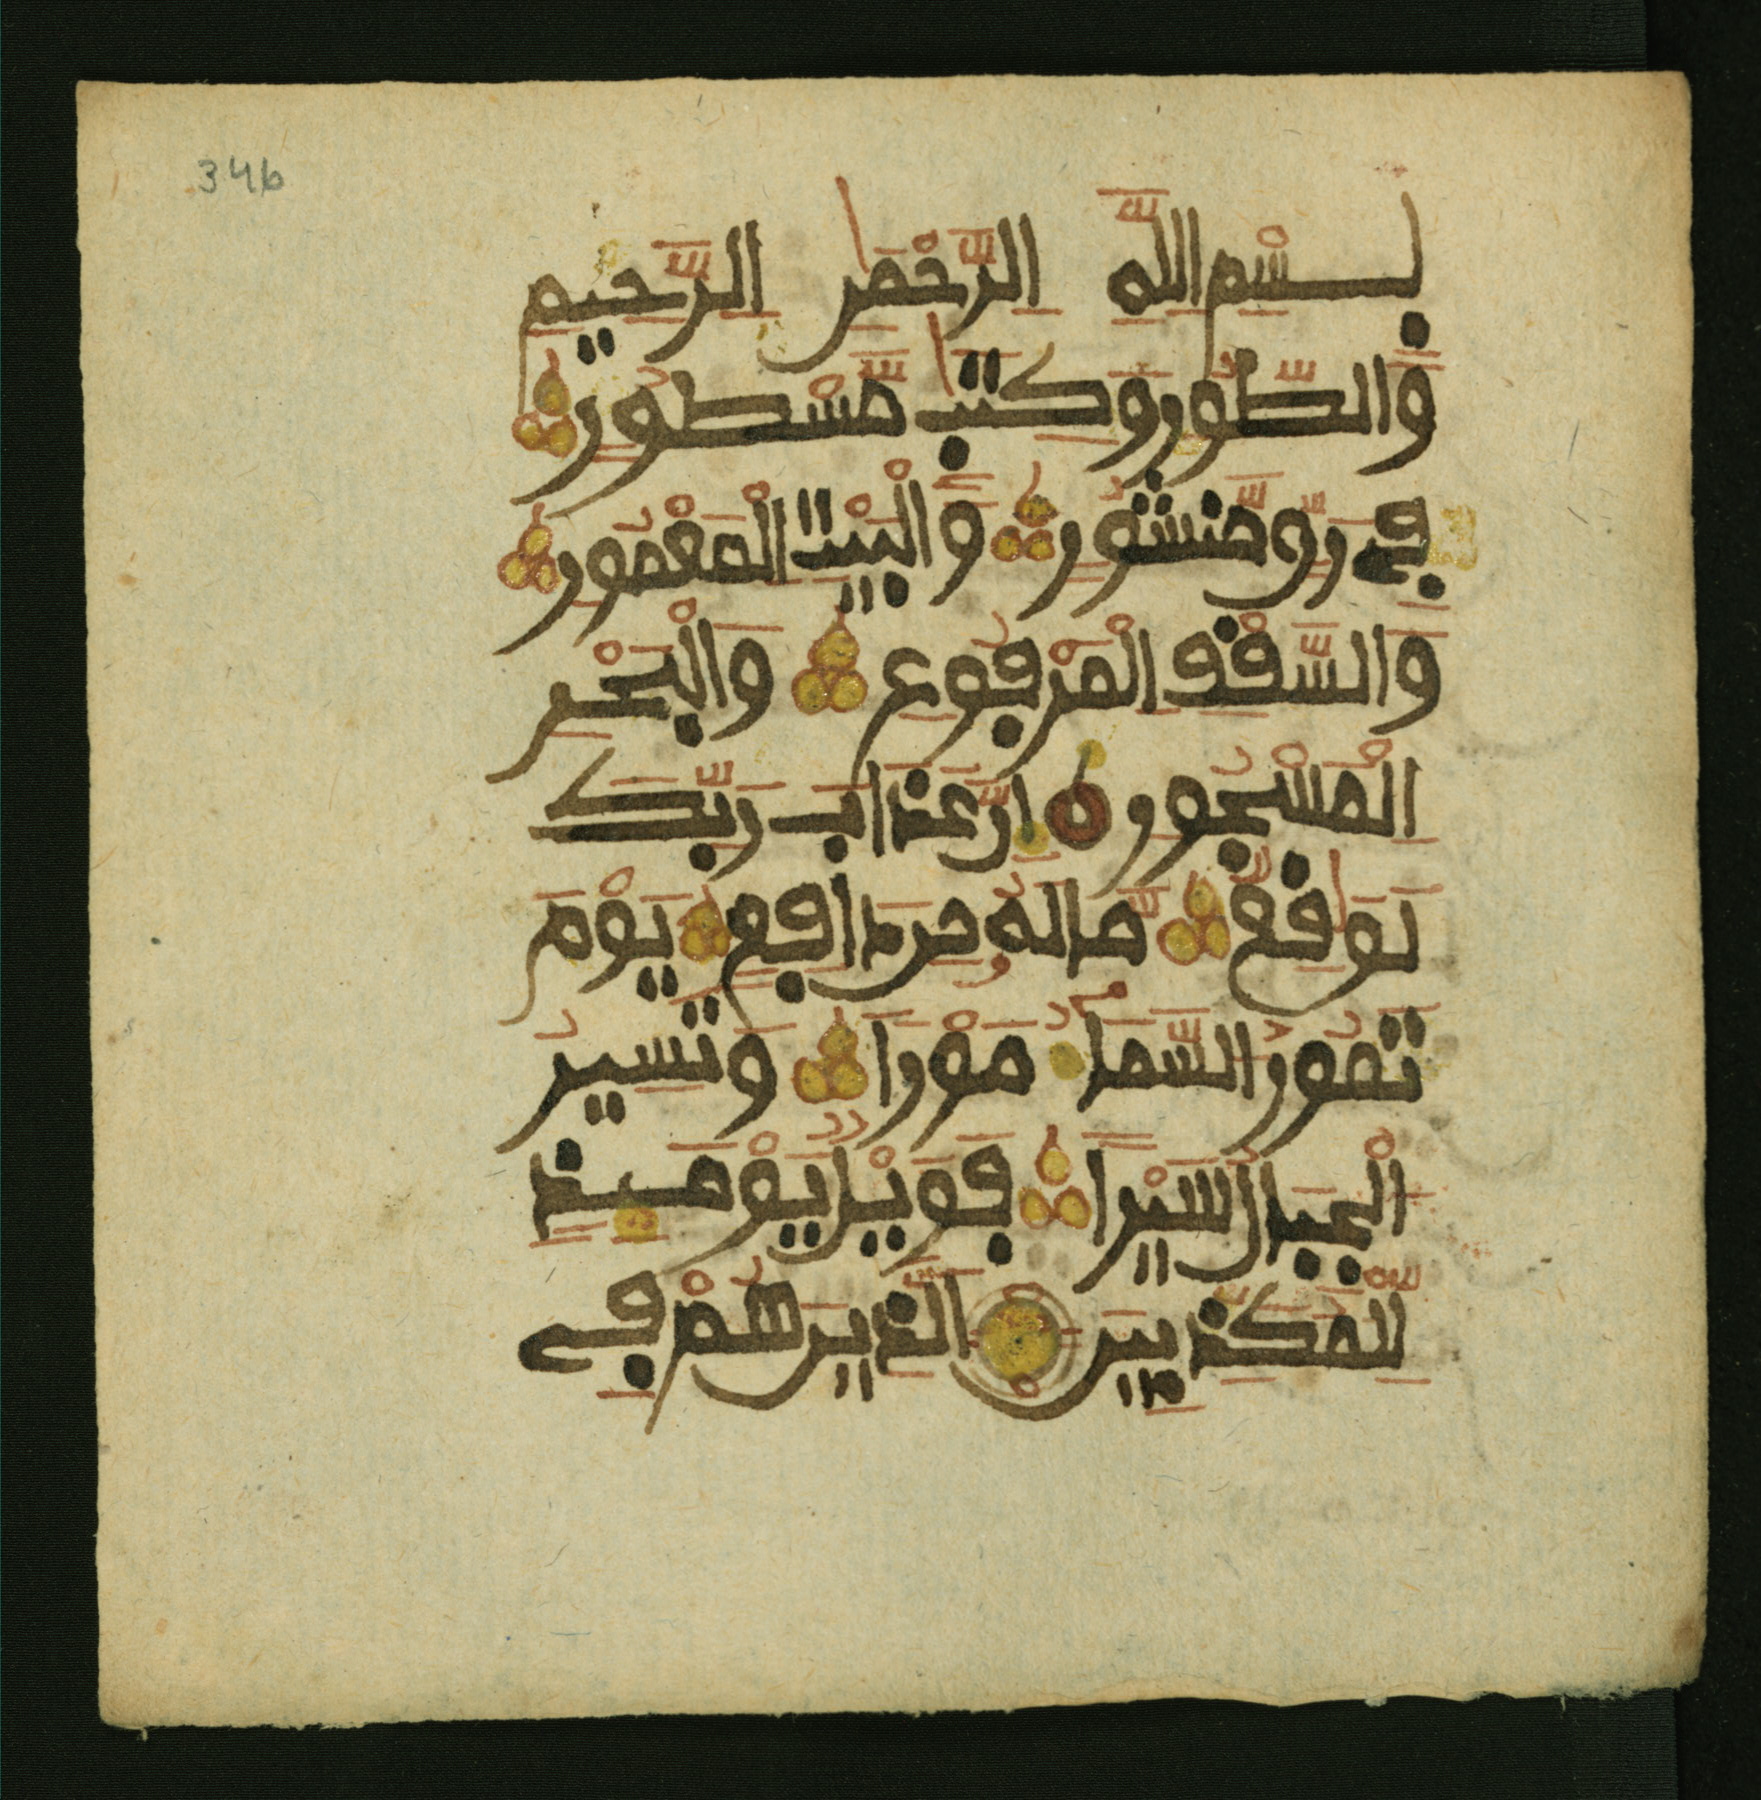 346
بِسْمِ اللَّهِ الرَّحْمَٰنِ الرَّحِيمِ
وَالطُّورِ وَكِتَٰبٍ مَّسْطُورٍ
فِي رَقٍّ مَّنشُورٍ وَالْبَيْتِ الْمَعْمُورِ
وَالسَّقْفِ الْمَرْفُوعِ وَالْبَحْرِ
الْمَسْجُورِ إِنَّ عَذَابَ رَبِّكَ
لَوَٰقِعٌ مَّا لَهُ مِن دَافِعٍ يَوْمَ
تَمُورُ السَّمَآءُ مَوْرًا وَتَسِيرُ
الْجِبَالُ سَيْرًا فَوَيْلٌ يَوْمَئِذٍ
لِّلْمُكَذِّبِينَ الَّذِينَ هُمْ فِي